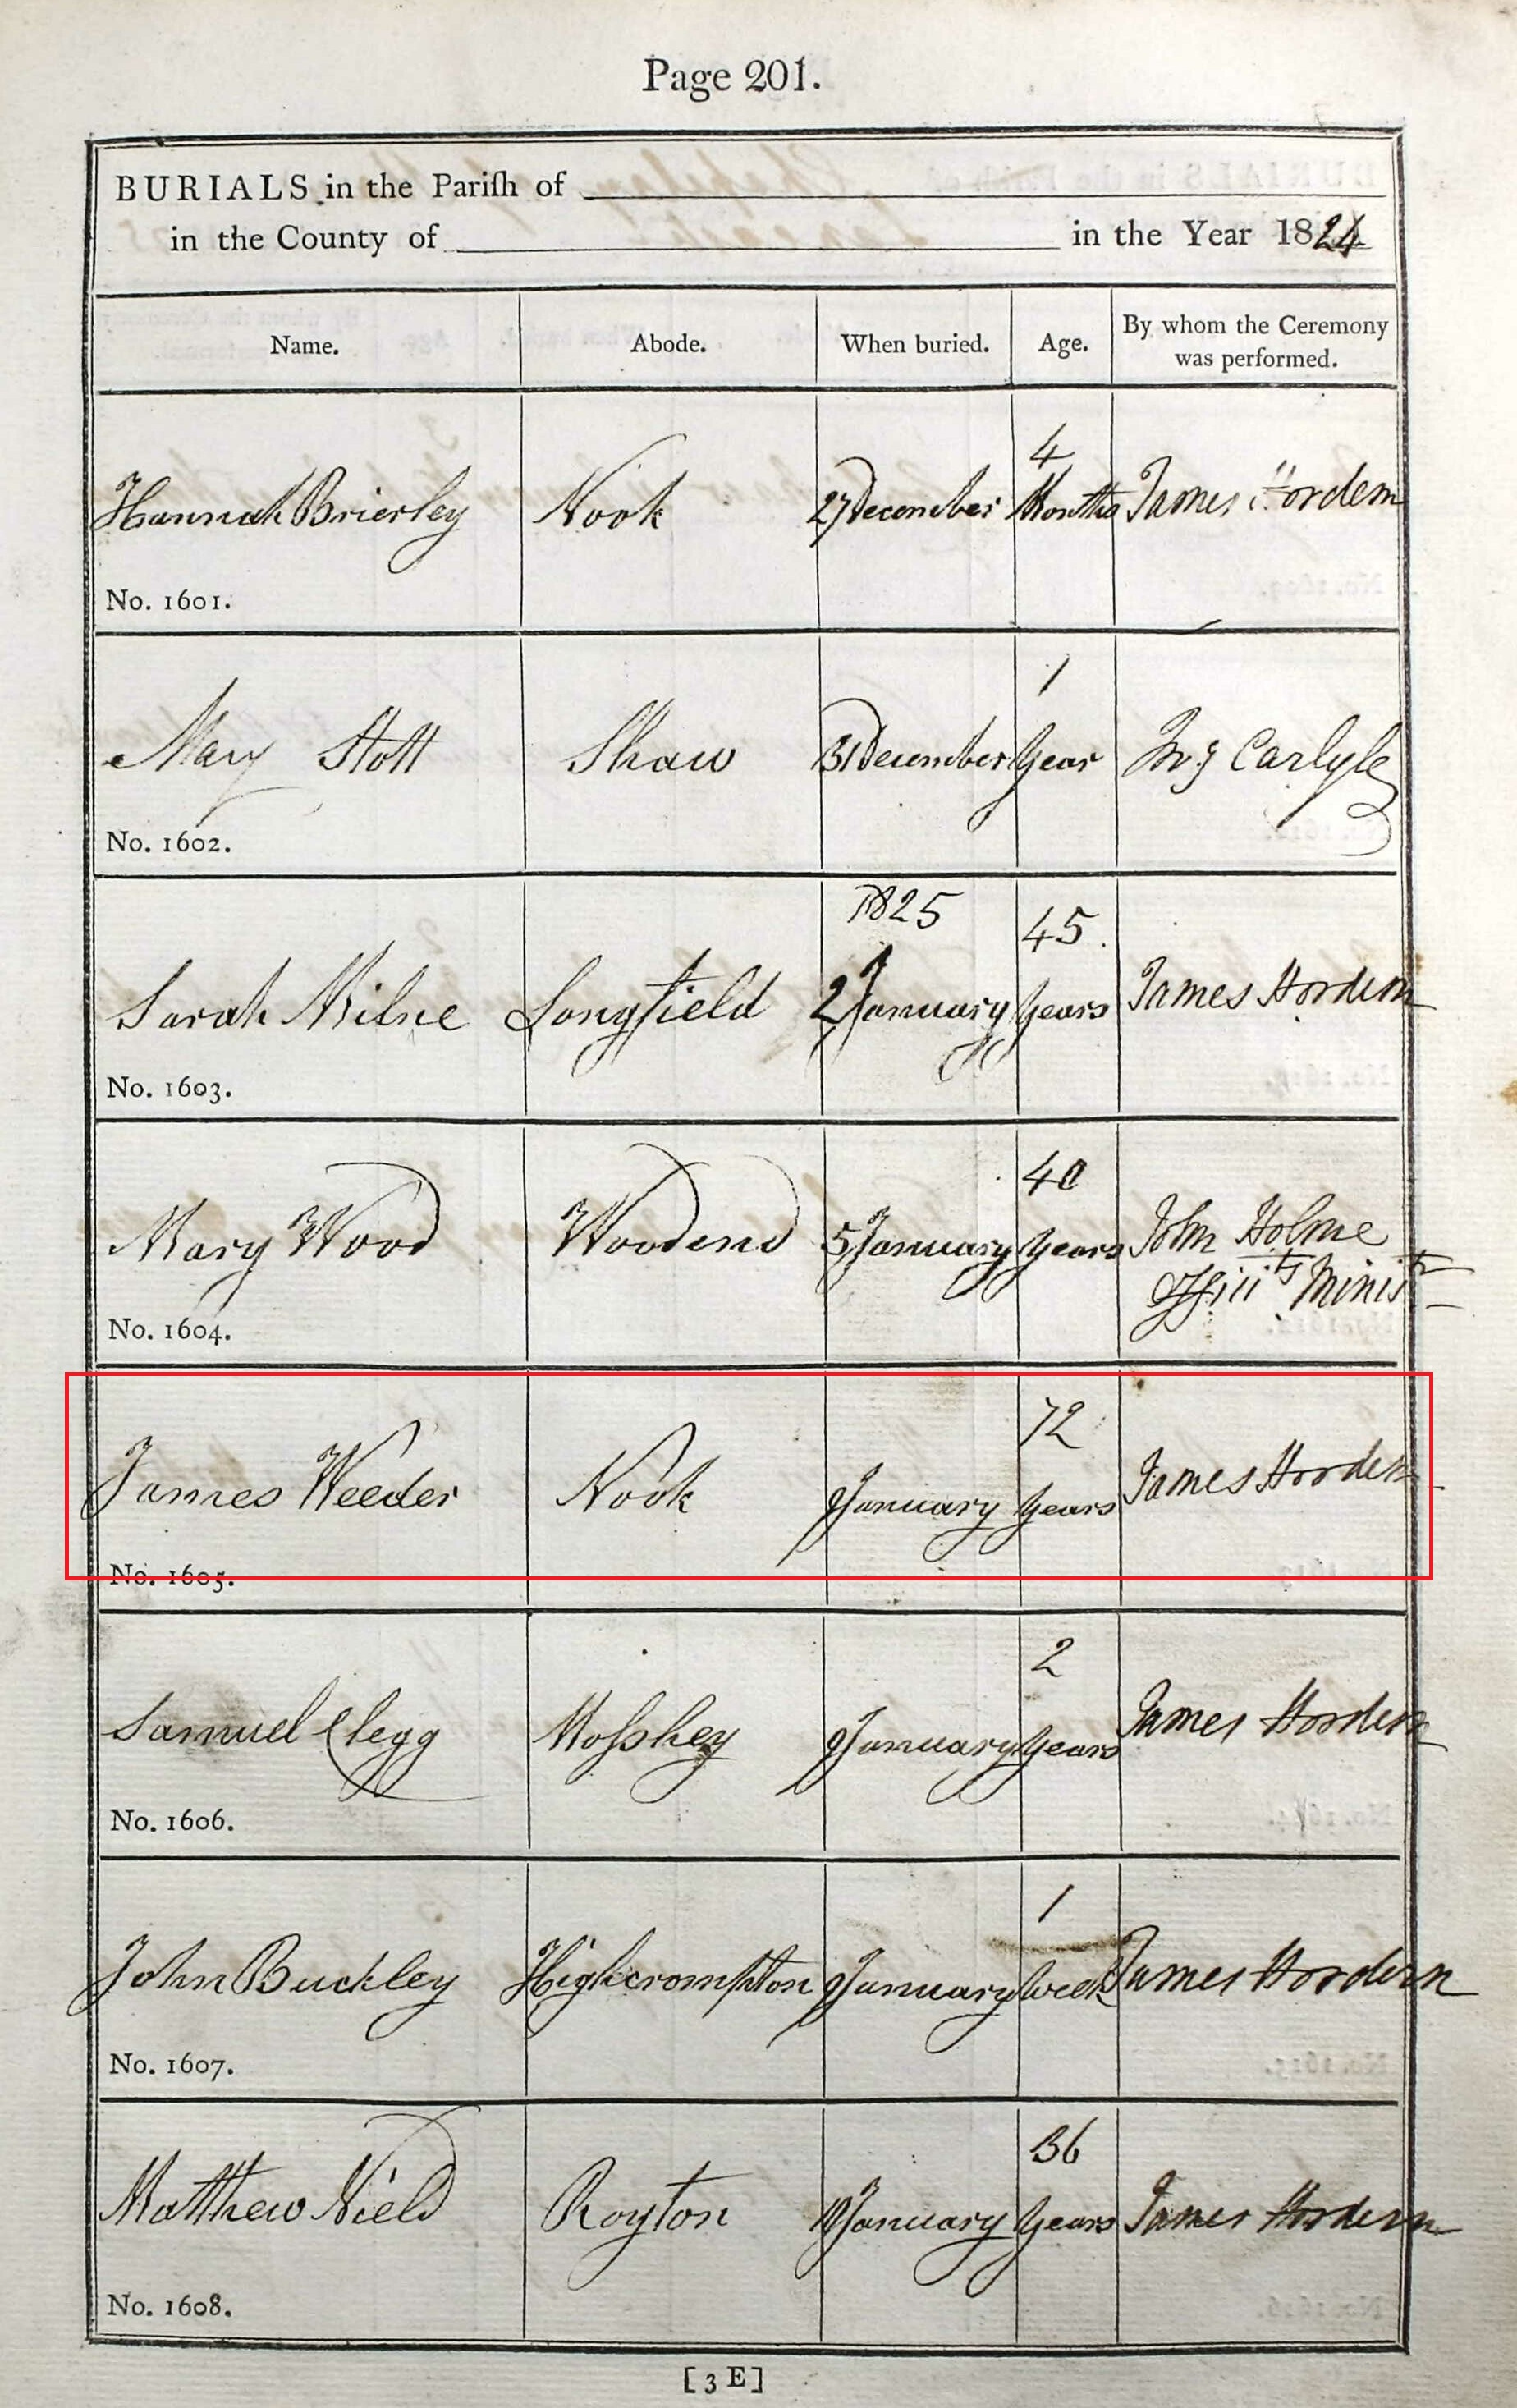 Page 201.
BURIALS in the Pariſh of
in the County of in the Year 1824
Name. Abode. When buried. Age. By whom the Ceremony was performed.
4
Hannah Brierley Nook 27 December Months James Hordern
No. 1601.
1
Mary Stott Shaw 31 December Year Carlyle
No. 1602.
1825 45.
Sarah Milne Longfield 2 January Years James Hordern
No. 1603.
40
Mary Wood Woodend 5 January Years John Holme
Ministr
No. 1604.
72
James Weeder Nook 9 January Years James Hordern
No. 1605.
2
Samuel Clegg Moſshey 9 January Years James Hordern
No. 1606.
1
John Buckley Highcrompton 9 January Week James Hordern
No. 1607.
36
Matthew Nield Royton January Years James Hordern
No. 1608.
[ 3 E ]